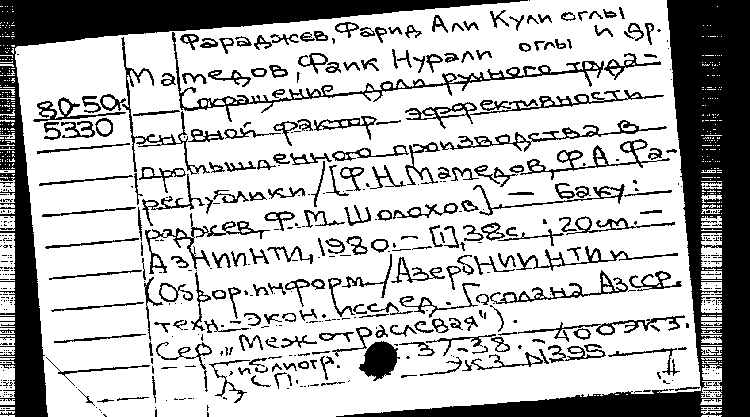 Фараджев, Фарид Али Кули оглы
Мамедов, Фаик Нурали оглы и др.
80-50к
5330
Сокращение доли ручного труда-
основной фактор эффективности
промышленного производства в
республики / [Ф.Н. Мамедов, Ф.А. Фа-
раджев, Ф.М. Шолохов]. — Баку:
АзНИИНТИ, 1980. - [1], 38с. ; 20см. —
(Обзор. информ. / АзербНИИНТИ и
техн. - экон. исслед. Госплана АзССР.
Сер. „Межотраслевая").
Библиогр.: 37-38. - 400экз.
ДСП. экз. N395.